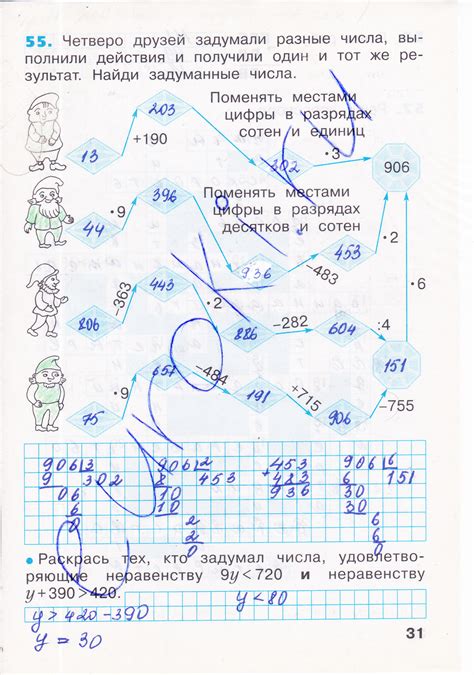 55. Четверо друзей задумали разные числа, вы-
полнили действия и получили один и тот же ре-
зультат. Найди задуманные числа.
203
Поменять местами
цифры в разрядах
сотен и единиц
+190
·3
13
302
906
396
Поменять местами
цифры в разрядах
десятков и сотен
·9
44
936
453
·2
−483
443
−363
·2
·6
806
886
−282
604
:4
151
657
−484
·9
191
+715
−755
75
906
906 3
9 302
06
6
0
906 2
8 453
10
10
2
2
0
+453
483
936
906 6
6 151
30
30
6
6
0
• Раскрась тех, кто задумал числа, удовлетво-
ряющие неравенству 9y < 720 и неравенству
y + 390 > 420.
y < 80
y > 420 − 390
y = 30
31